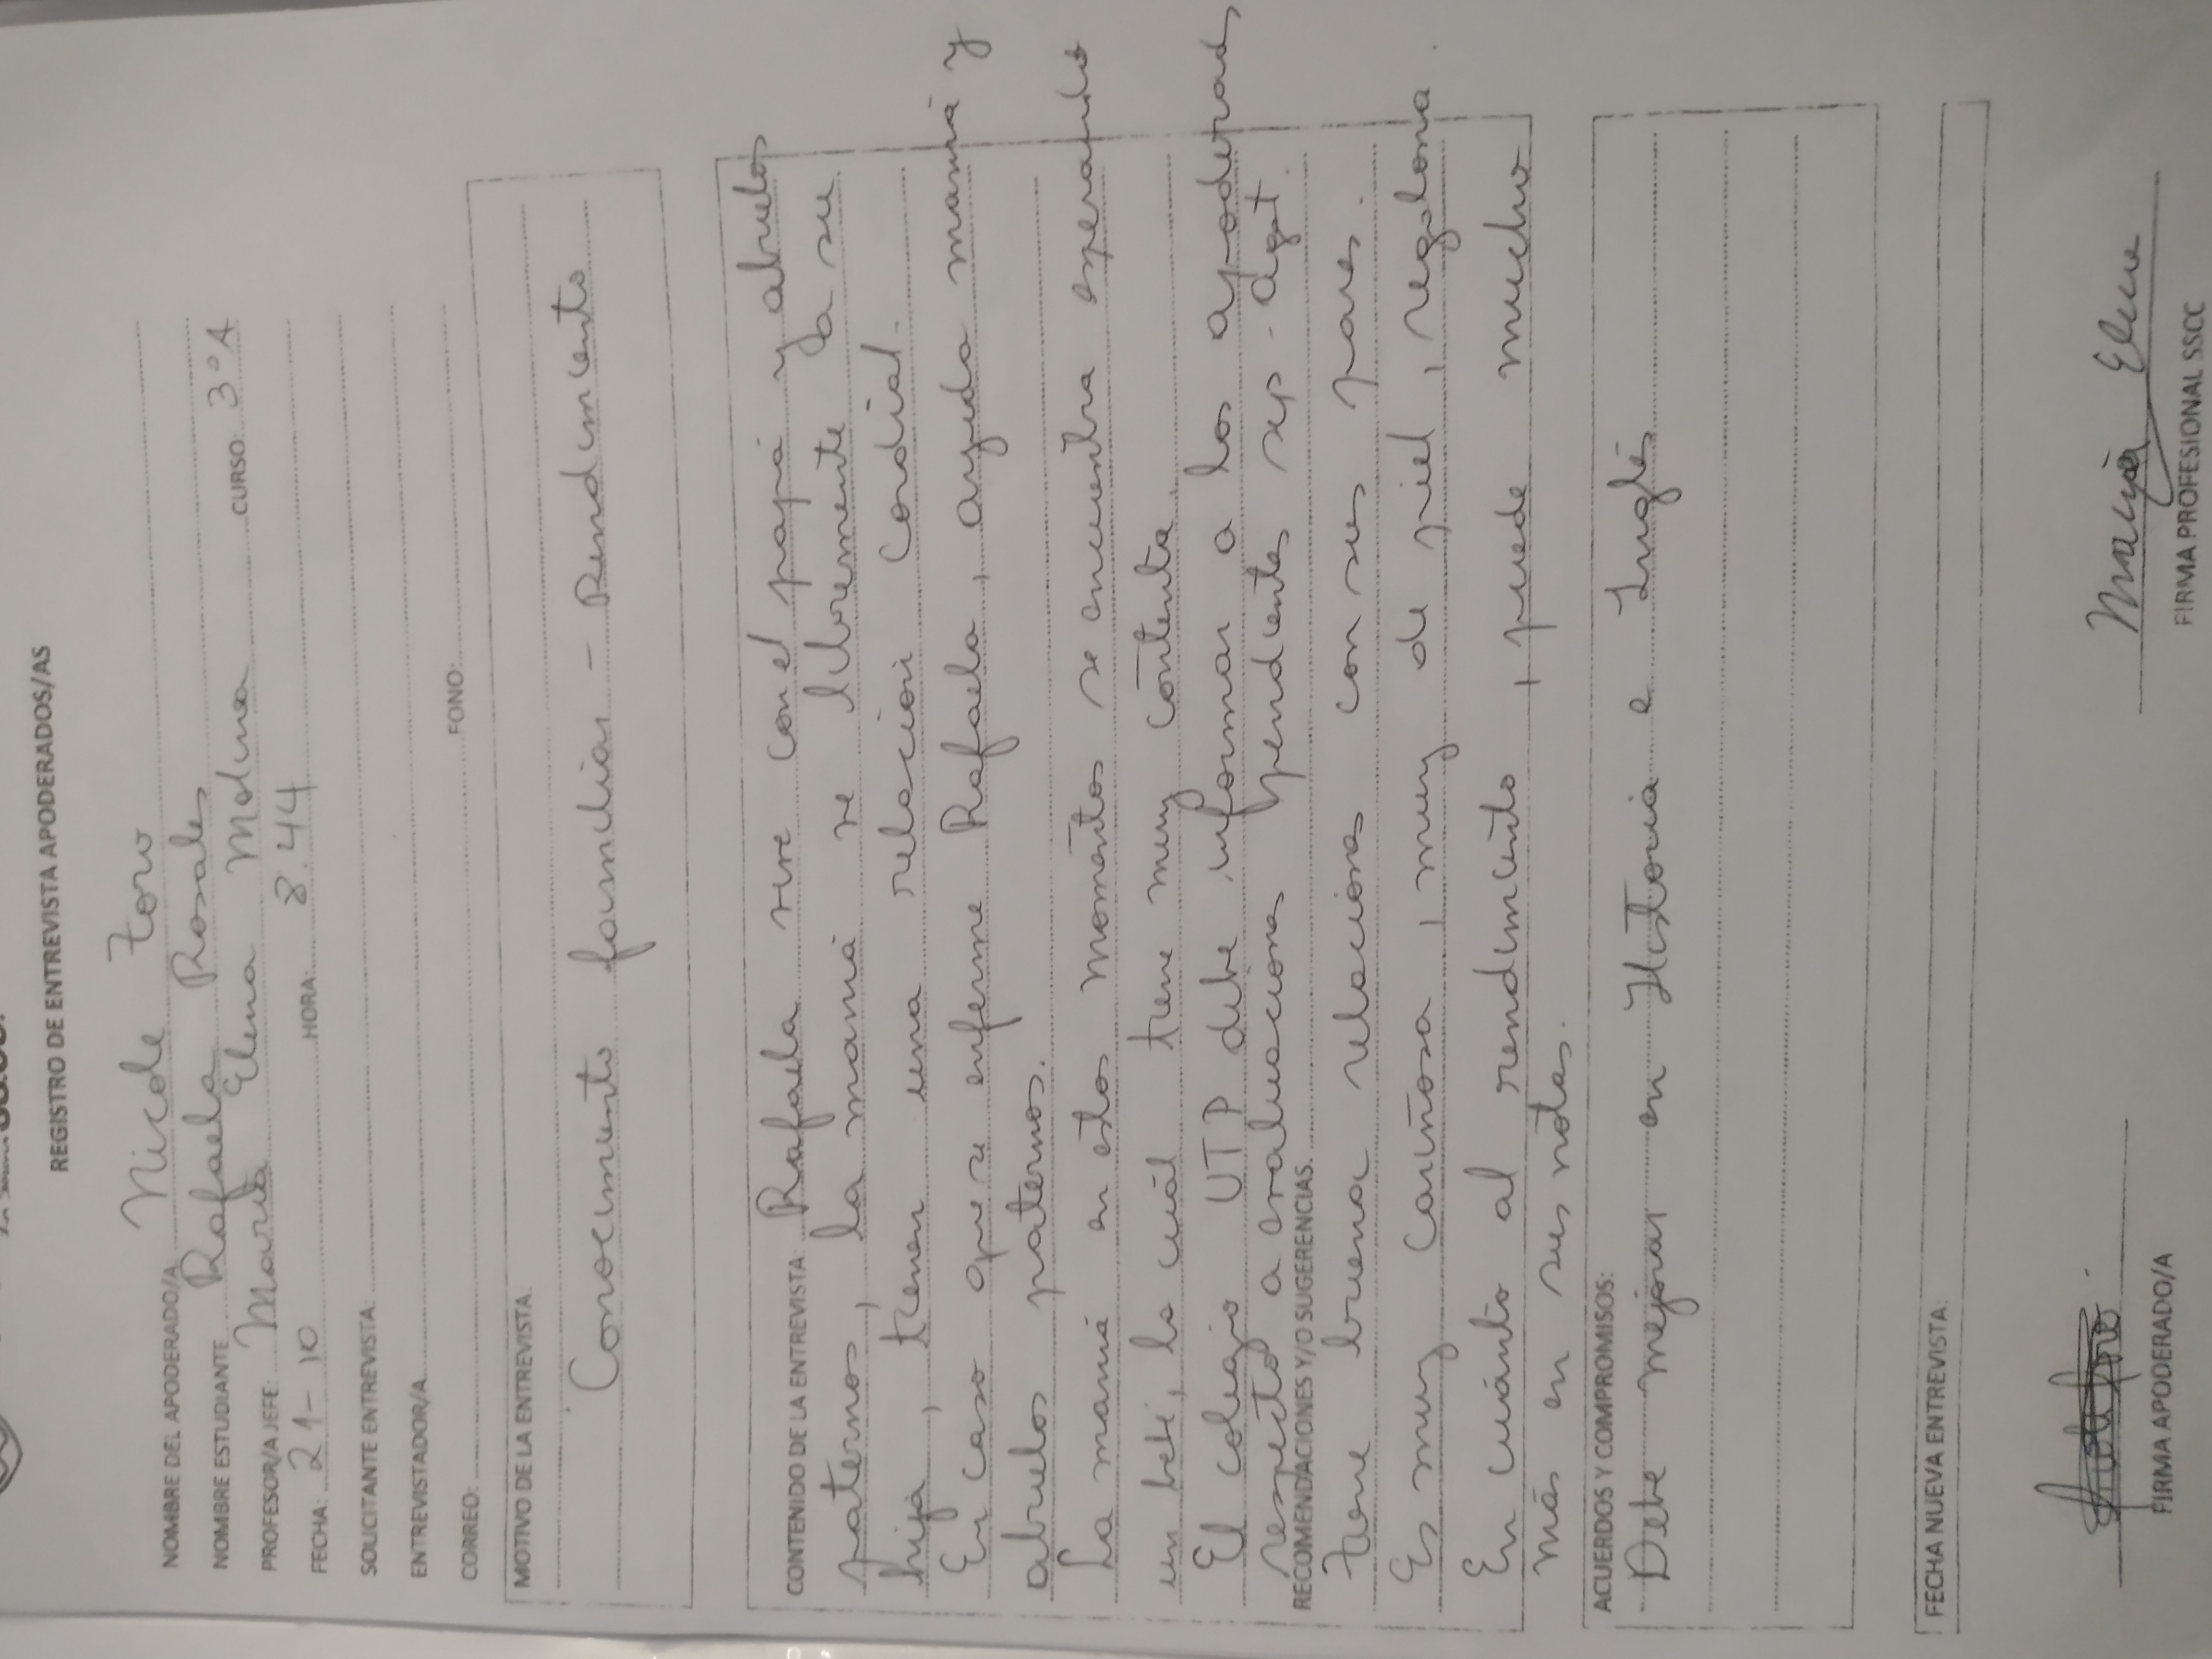 REGISTRO DE ENTREVISTA APODERADOS/AS
NOMBRE DEL APODERADO/A Nicole Toro
NOMBRE ESTUDIANTE Rafaela Rosales
PROFESOR/A JEFE: María Elena Molina CURSO: 3°A
FECHA: 21-10 HORA: 8:44
SOLICITANTE ENTREVISTA:
ENTREVISTADOR/A
CORREO: FONO:
MOTIVO DE LA ENTREVISTA.
Conocimiento familiar - Rendimiento
CONTENIDO DE LA ENTREVISTA: Rafaela vive con el papá y abuelos
paternos, la mamá ve libremente a su
hija, tienen una relación cordial.
En caso que se enferme Rafaela, ayuda mamá y
abuelos paternos.
La mamá en estos momentos se encuentra esperando
un bebé, la cuál tiene muy contenta.
El colegio UTP debe informar a los apoderados
respecto a evaluaciones pendientes sep - agost.
RECOMENDACIONES Y/O SUGERENCIAS.
Tiene buena relaciones con sus pares.
Es muy cariñosa, muy de piel, regalona.
En cuánto al rendimiento, puede mucho
más en sus notas.
ACUERDOS Y COMPROMISOS:
Debe mejorar en Historia e Inglés
FECHA NUEVA ENTREVISTA.
FIRMA APODERADO/A
María Elena
FIRMA PROFESIONAL SSCC